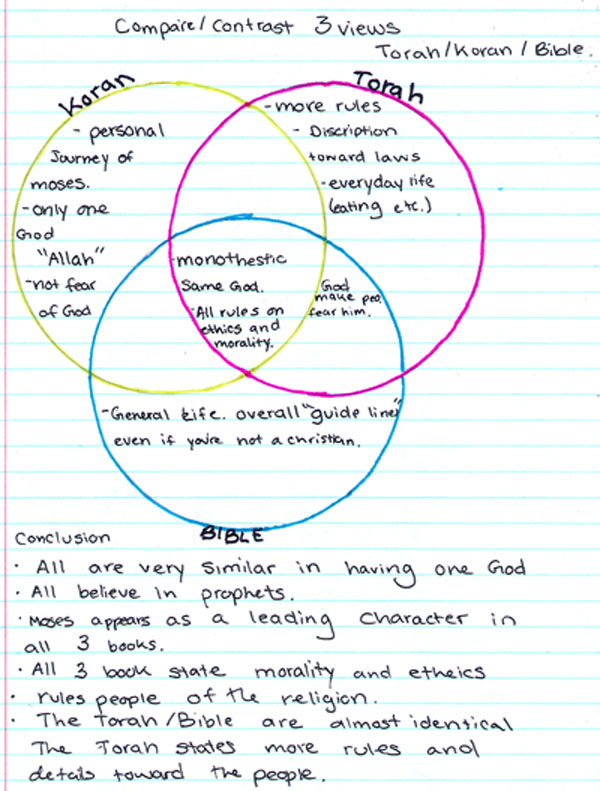 Compare/Contrast 3 views
Torah/Koran/Bible.
Koran
- personal
Journey of
moses.
- only one
God
"Allah"
- not fear
of God
Torah
- more rules
- Discription
toward laws
- everyday life
(eating etc.)
- monothestic
Same God.
- All rules on
ethics and
morality.
God
make peo.
fear him.
- General Life. overall "guide line"
even if you're not a christian.
BIBLE
Conclusion
· All are very similar in having one God
· All believe in prophets.
· Moses appears as a leading character in
all 3 books.
· All 3 book state morality and etheics
· rules people of the religion.
· The Torah/Bible are almost identical
The Torah states more rules and
details toward the people.